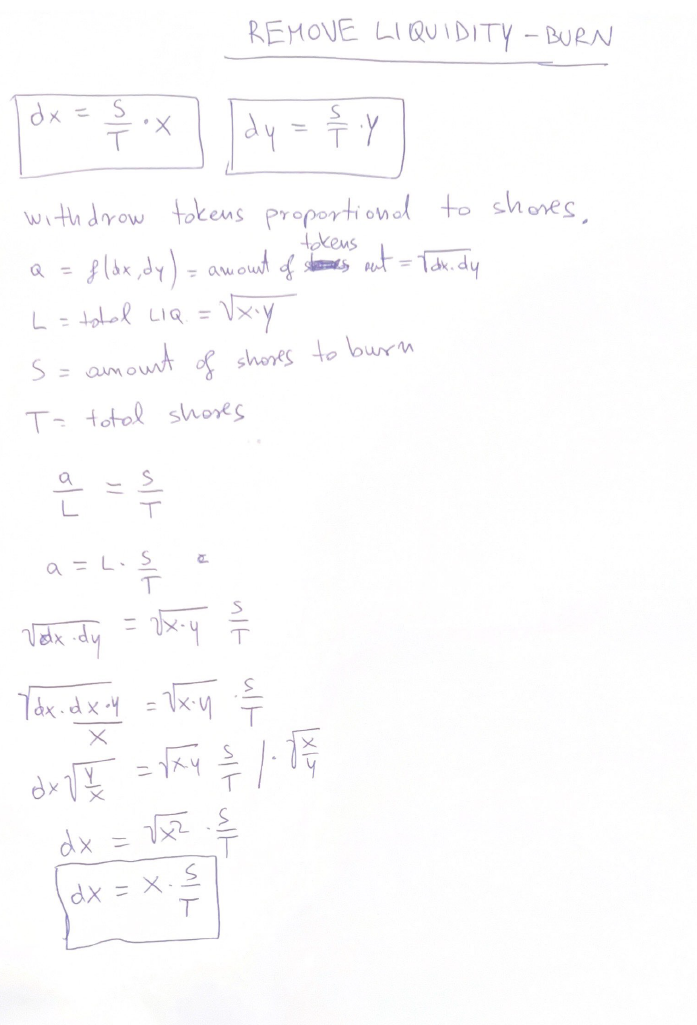 REMOVE LIQUIDITY - BURN
dx = S/T · X    dy = S/T · Y
withdrow tokens proportional to shores.
a = f(dx,dy) = amount of tokens out = √dx·dy
L = total LIQ = √x·y
S = amount of shares to burn
T = total shores
a/L = S/T
a = L · S/T
√dx·dy = √x·y S/T
√(dx·dx·y/x) = √x·y · S/T
dx √(y/x) = √xy S/T /· √(x/y)
dx = √x² · S/T
dx = X · S/T